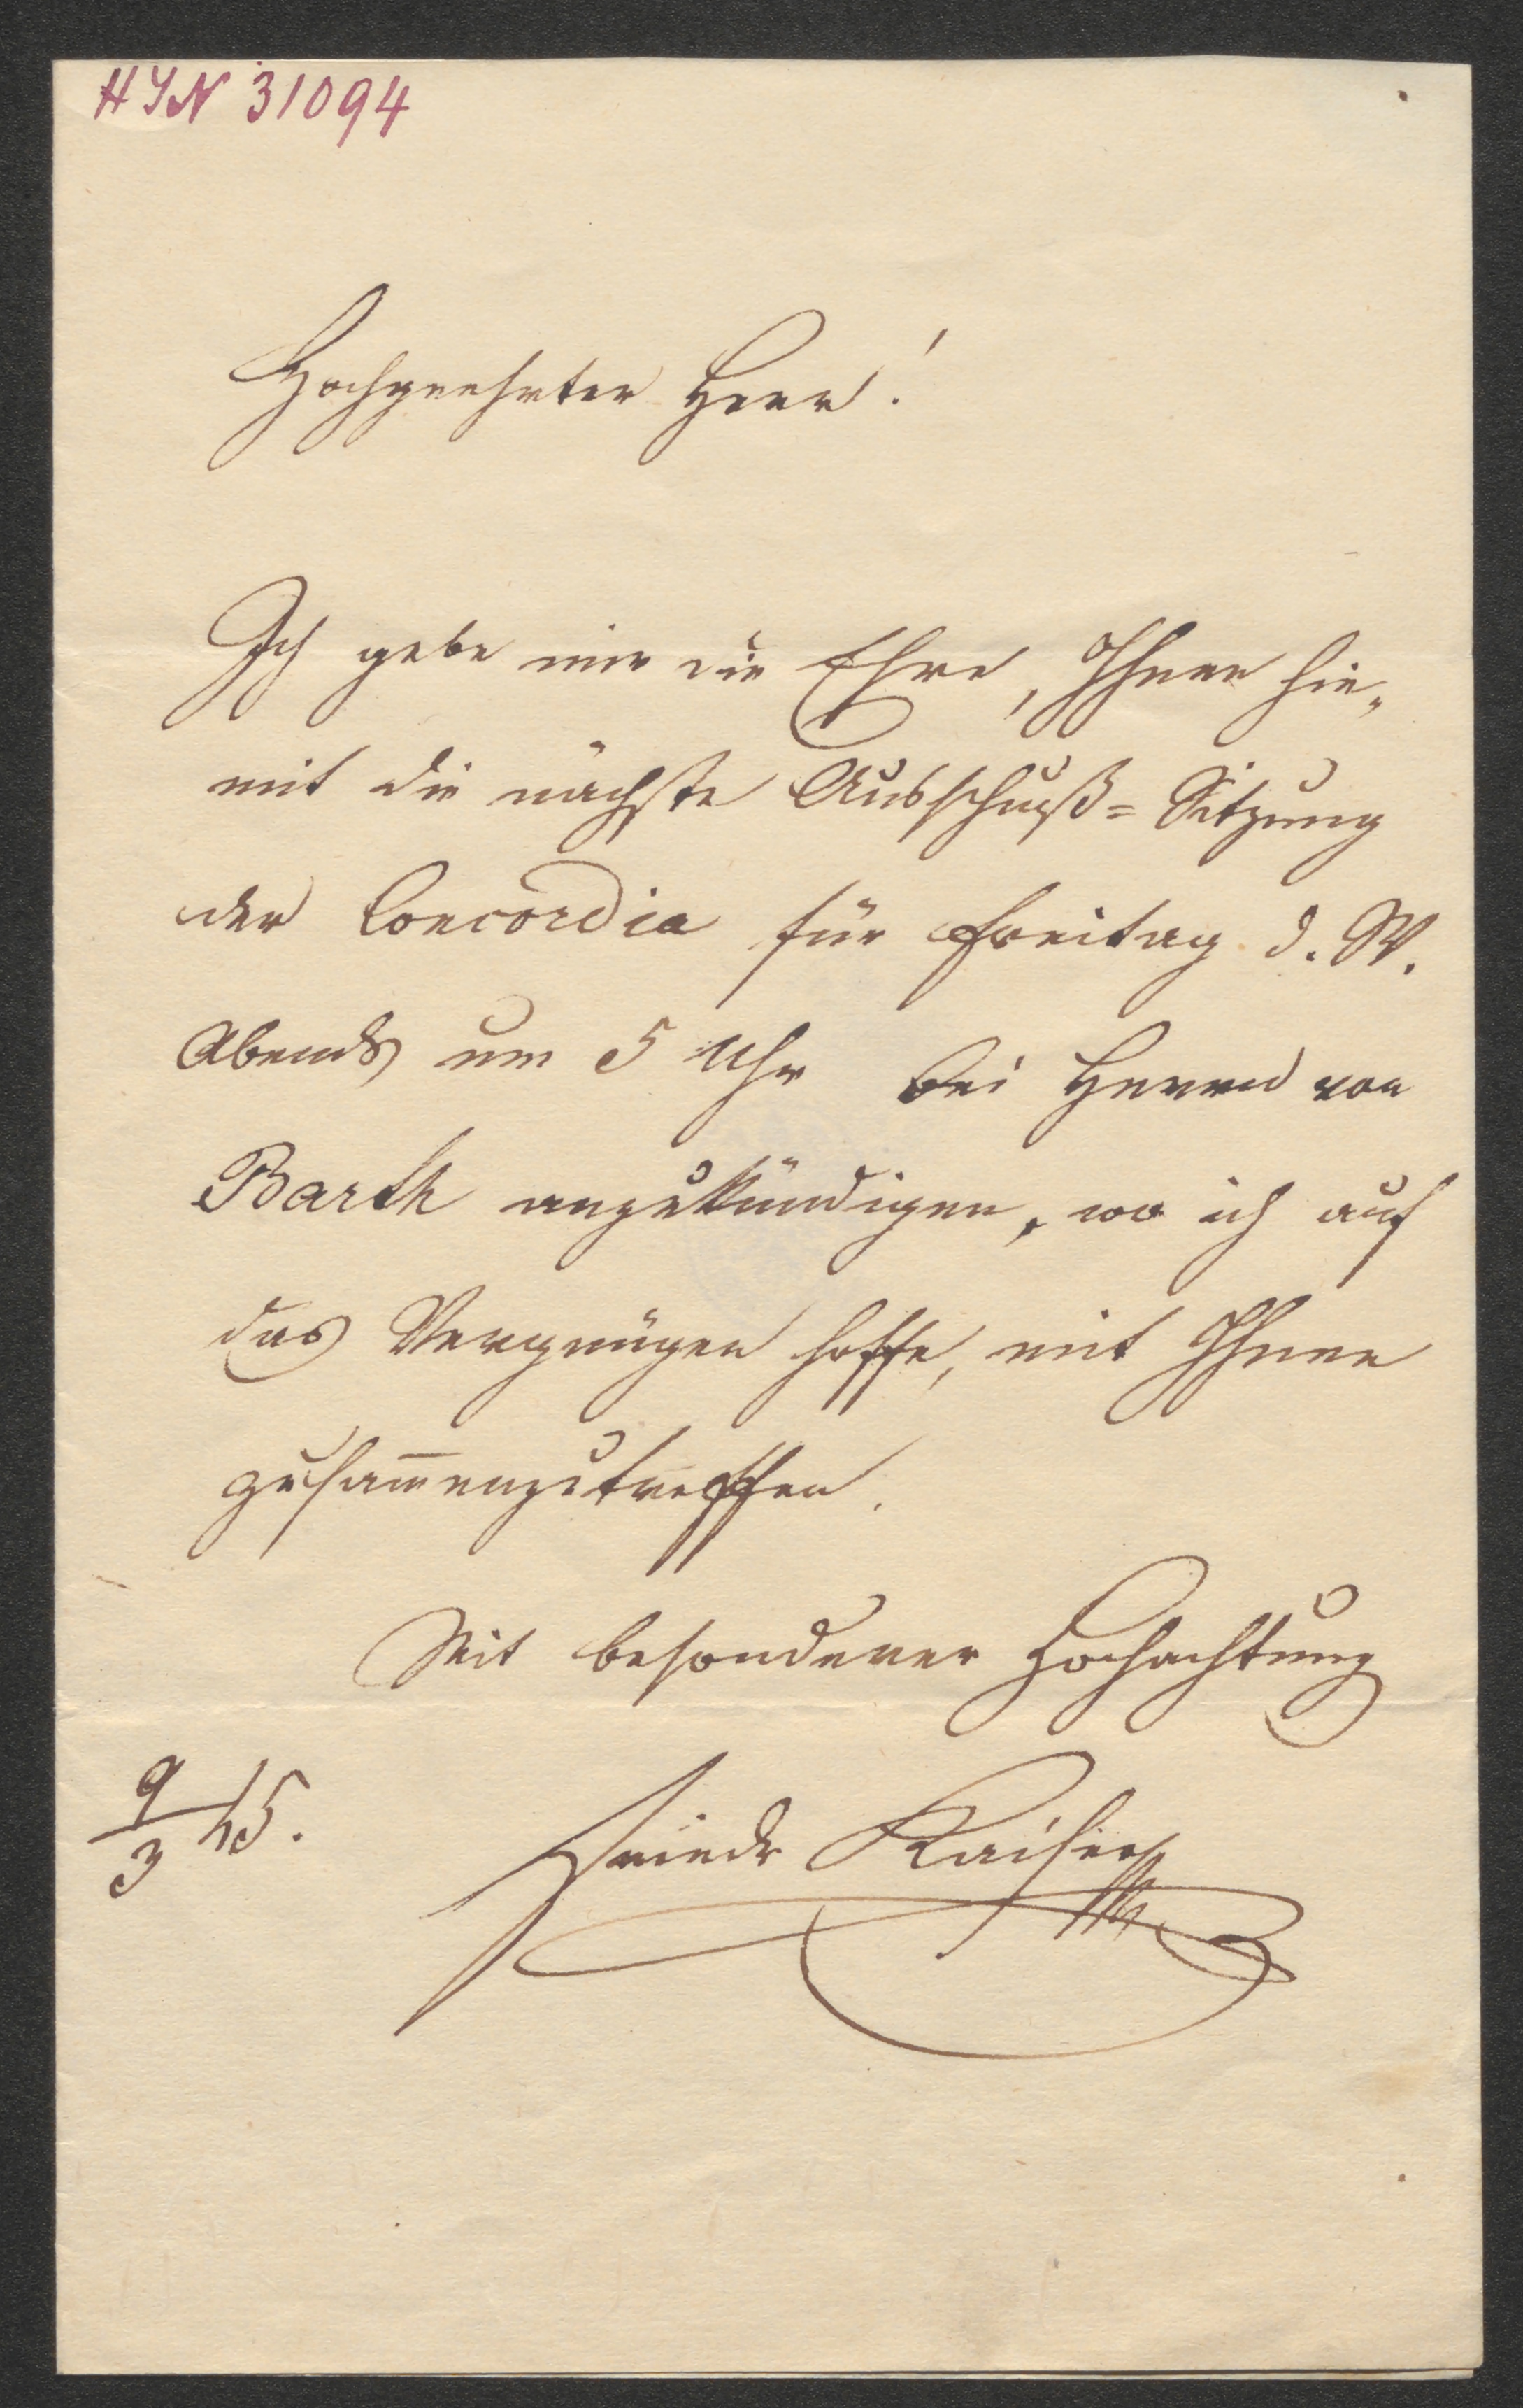 HIN 31094
Hochgeehrter Herr!
Ich gebe mir die Ehre, Ihnen hie„
mit die nächste Ausschuß=Sitzung
der Concordia für Freitag d. W.
Abends um 5 Uhr bei Herrn von
Barth anzukündigen, wo ich auf
das Vergnügen hoffe, mit Ihnen
zusam̅enzutreffen.
Mit besonderer Hochachtung
9/3 45.
Friedr Kaiser